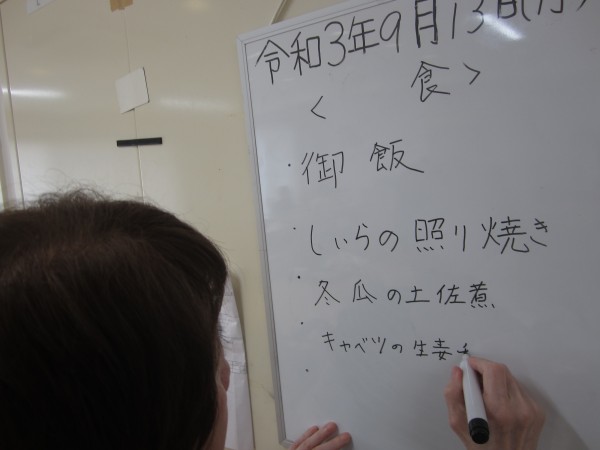 令和3年9月13日(月)
< 食>
・御飯
・しいらの照り焼き
・冬瓜の土佐煮
・キャベツの生姜
・